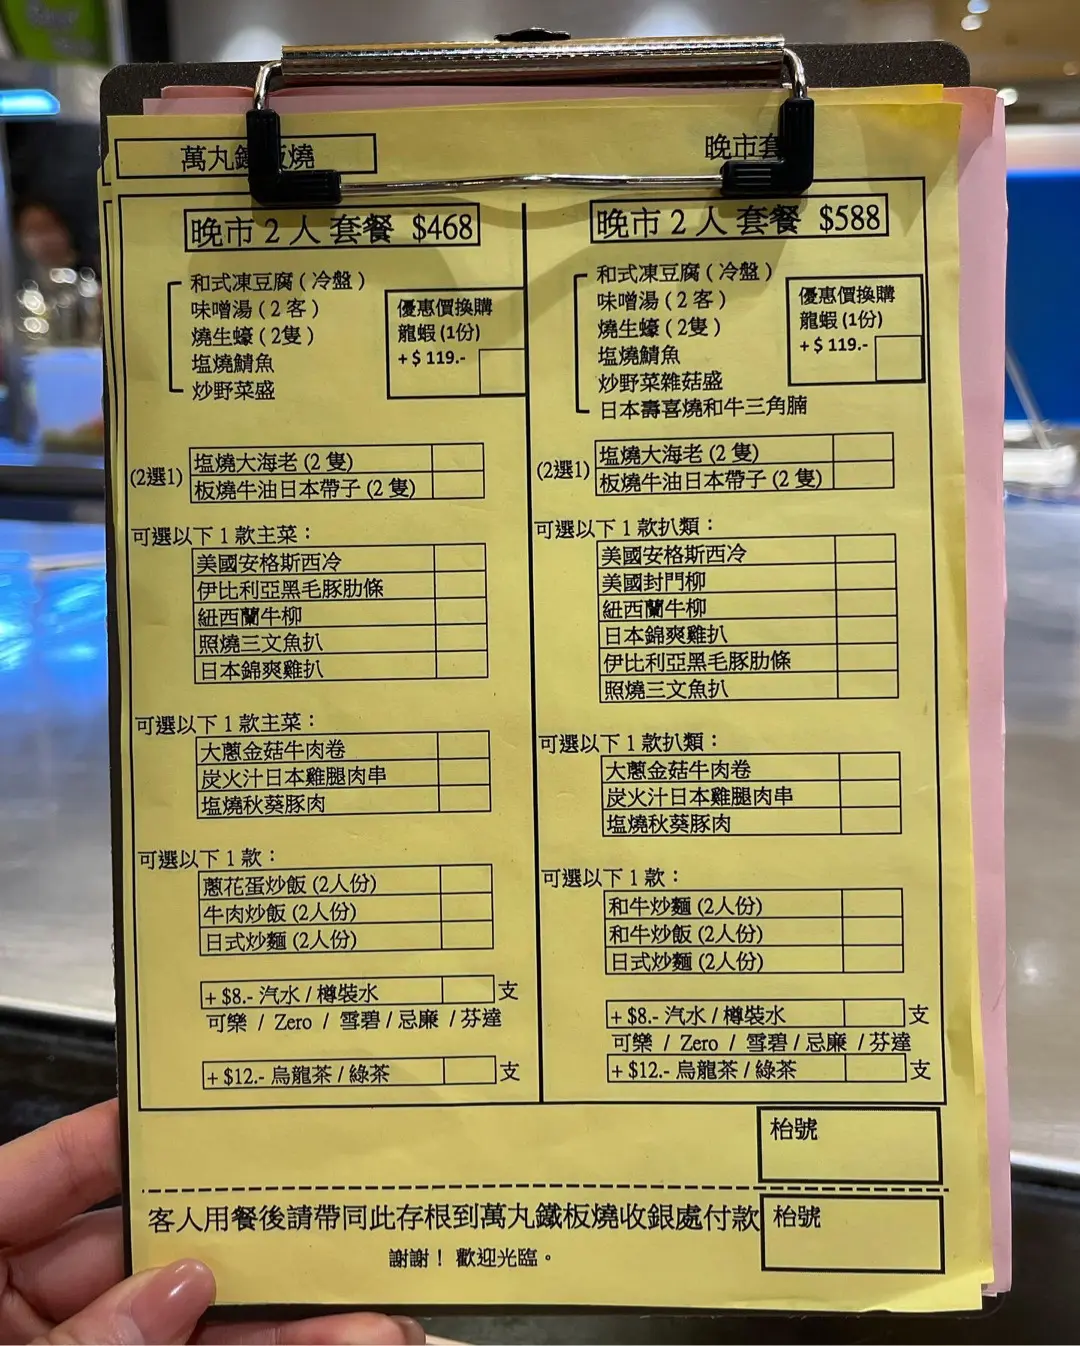 萬丸鐵板燒
晚市套
晚市 2 人 套餐 $468
和式凍豆腐 ( 冷盤 )
味噌湯 ( 2 客 )
燒生蠔 ( 2隻 )
塩燒鯖魚
炒野菜盛
優惠價換購
龍蝦 (1份)
+ $ 119.-
(2選1)
塩燒大海老 (2 隻)
板燒牛油日本帶子 (2 隻)
可選以下 1 款主菜：
美國安格斯西冷
伊比利亞黑毛豚肋條
紐西蘭牛柳
照燒三文魚扒
日本錦爽雞扒
可選以下 1 款主菜：
大蔥金菇牛肉卷
炭火汁日本雞腿肉串
塩燒秋葵豚肉
可選以下 1 款：
蔥花蛋炒飯 (2人份)
牛肉炒飯 (2人份)
日式炒麵 (2人份)
+ $8.- 汽水 / 樽裝水 支
可樂 / Zero / 雪碧 / 忌廉 / 芬達
+ $12.- 烏龍茶 / 綠茶 支
晚市 2 人 套餐 $588
和式凍豆腐 ( 冷盤 )
味噌湯 ( 2 客 )
燒生蠔 ( 2隻 )
塩燒鯖魚
炒野菜雜菇盛
日本壽喜燒和牛三角腩
優惠價換購
龍蝦 (1份)
+ $ 119.-
(2選1)
塩燒大海老 (2 隻)
板燒牛油日本帶子 (2 隻)
可選以下 1 款扒類：
美國安格斯西冷
美國封門柳
紐西蘭牛柳
日本錦爽雞扒
伊比利亞黑毛豚肋條
照燒三文魚扒
可選以下 1 款扒類：
大蔥金菇牛肉卷
炭火汁日本雞腿肉串
塩燒秋葵豚肉
可選以下 1 款：
和牛炒麵 (2人份)
和牛炒飯 (2人份)
日式炒麵 (2人份)
+ $8.- 汽水 / 樽裝水 支
可樂 / Zero / 雪碧 / 忌廉 / 芬達
+ $12.- 烏龍茶 / 綠茶 支
枱號
客人用餐後請帶同此存根到萬丸鐵板燒收銀處付款
枱號
謝謝！ 歡迎光臨。